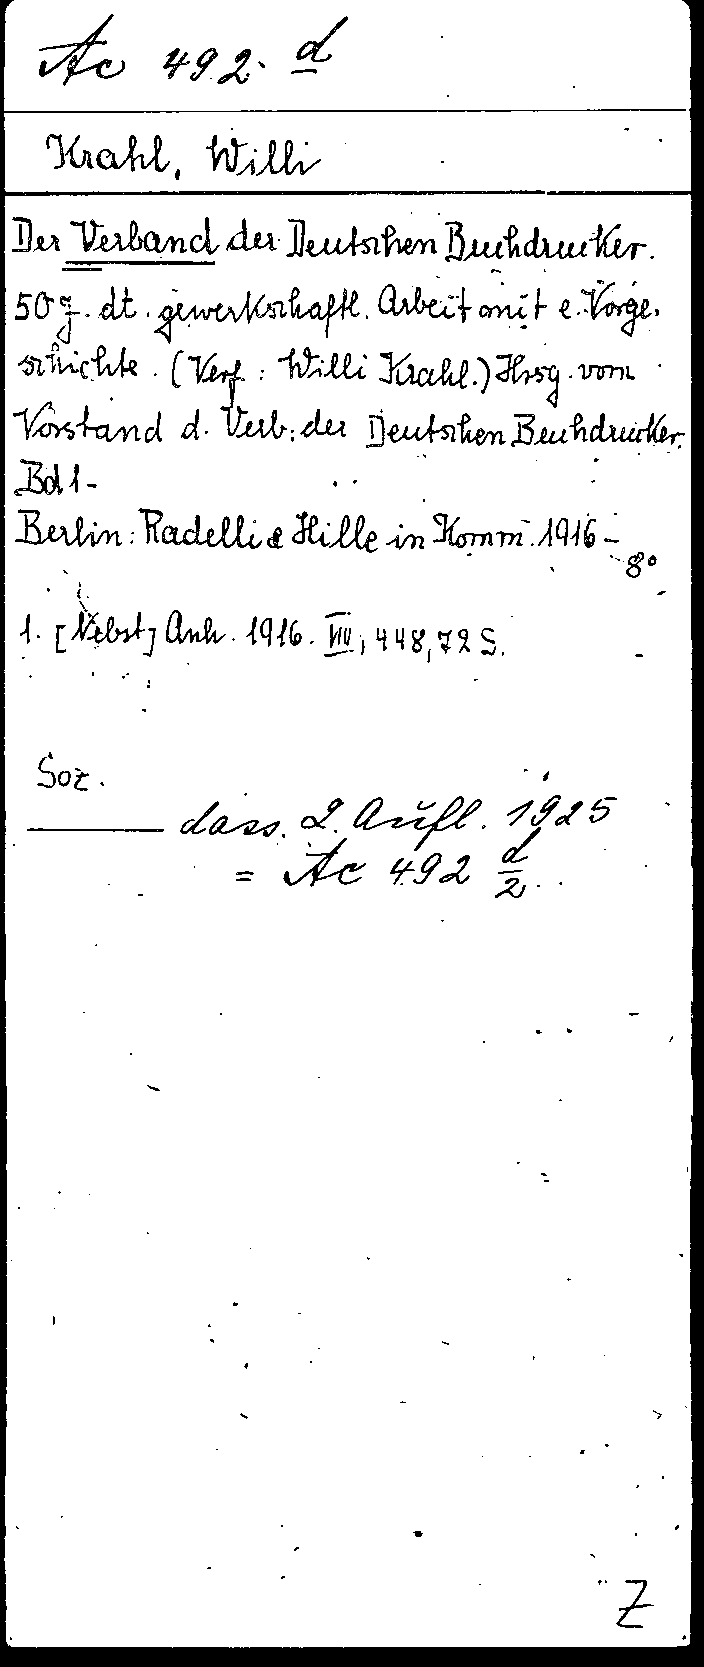 Ac 492 d
Krahl, Willi
Der Verband der Deutschen Buchdrucker.
50 J. dt. gewerkschaftl. Arbeit mit e. Vorge-
schichte. (Verf.: Willi Krahl.) Hrsg. vom
Vorstand d. Verb. der Deutschen Buchdrucker.
Bd 1-
Berlin: Radelli & Hille in Komm. 1916-
8°
1. [Nebst] Anh. 1916. VIII, 448, 72 S.
Soz.
——— dass. 2. Aufl. 1925
= Ac 492 d/2
Z